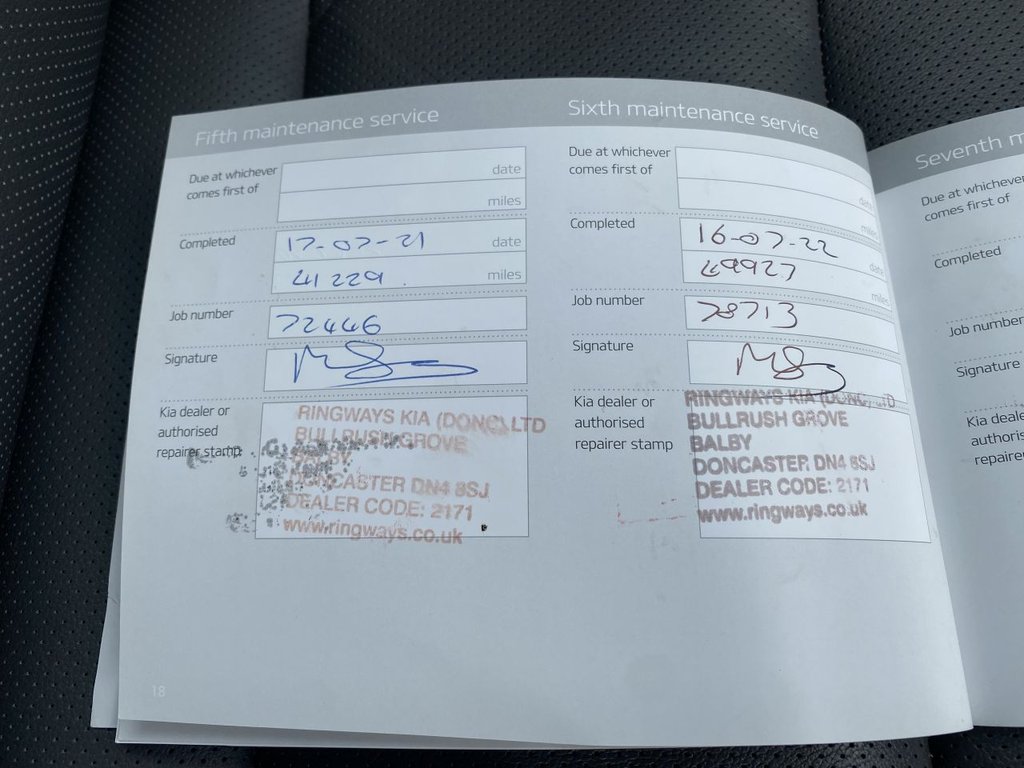 Fifth maintenance service
Due at whichever
comes first of
date
miles
Completed
17-07-21 date
41229 miles
Job number
72446
Signature
Kia dealer or
authorised
repairer stamp
RINGWAYS KIA (DONC) LTD
BULLRUSH GROVE
BALBY
DONCASTER DN4 8SJ
DEALER CODE: 2171
www.ringways.co.uk
18
Sixth maintenance service
Due at whichever
comes first of
date
miles
Completed
16-07-22 date
49927 miles
Job number
78713
Signature
Kia dealer or
authorised
repairer stamp
RINGWAYS KIA (DONC) LTD
BULLRUSH GROVE
BALBY
DONCASTER DN4 8SJ
DEALER CODE: 2171
www.ringways.co.uk
Seventh m
Due at whichever
comes first of
Completed
Job number
Signature
Kia deale
authoris
repairer